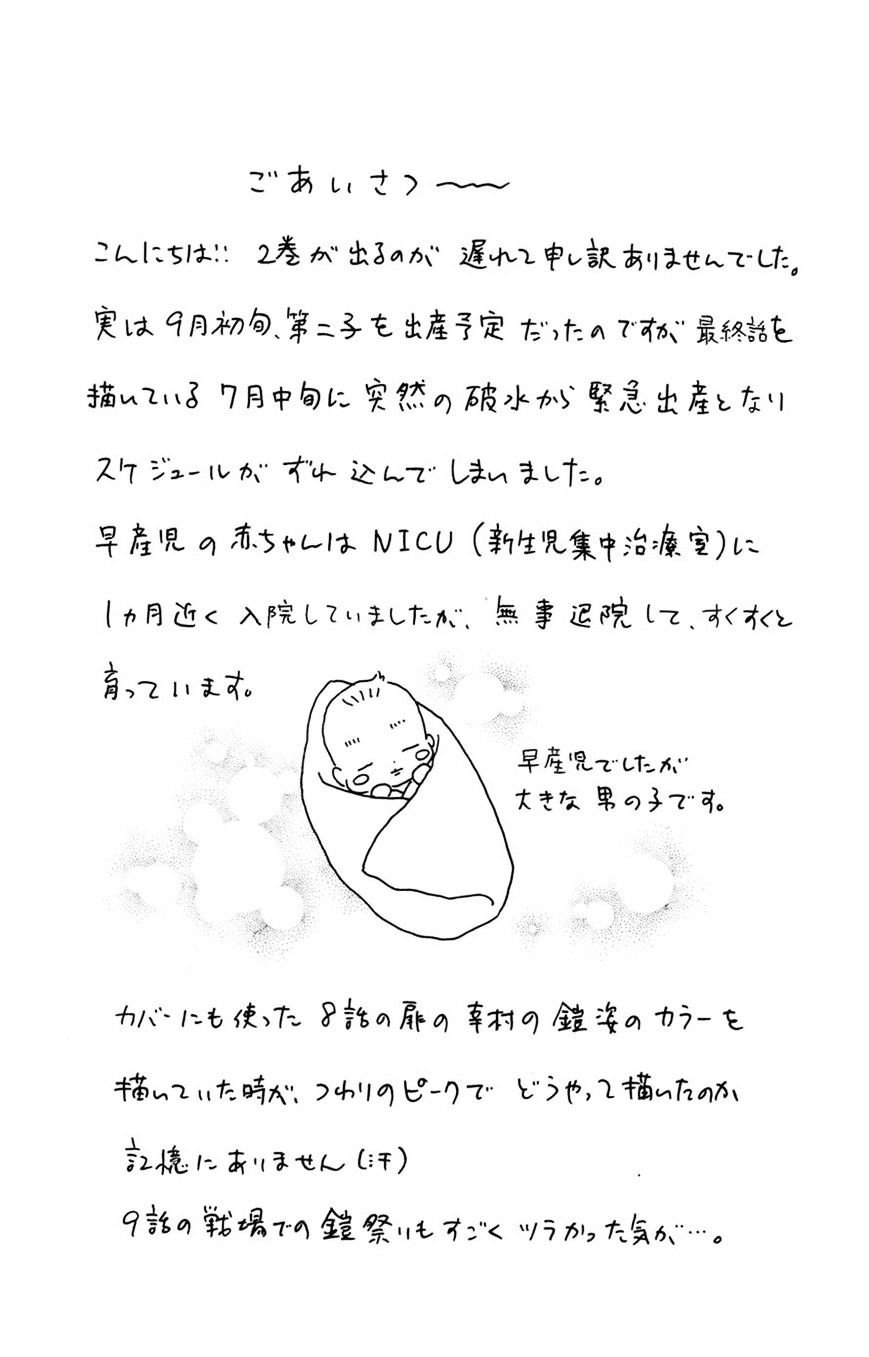 ごあいさつ〜〜
こんにちは!! 2巻が出るのが 遅れて申し訳ありませんでした。
実は9月初旬、第二子を出産予定だったのですが最終話を
描いている7月中旬に突然の破水から緊急出産となり
スケジュールがずれ込んでしまいました。
早産児の赤ちゃんはNICU(新生児集中治療室)に
1ヵ月近く入院していましたが、無事退院して、すくすくと
育っています。
早産児でしたが
大きな男の子です。
カバーにも使った8話の扉の幸村の鎧姿のカラーを
描いていた時が、つわりのピークでどうやって描いたのか
記憶にありません(汗)
9話の戦場での鎧祭りもすごくツラかった気が…。